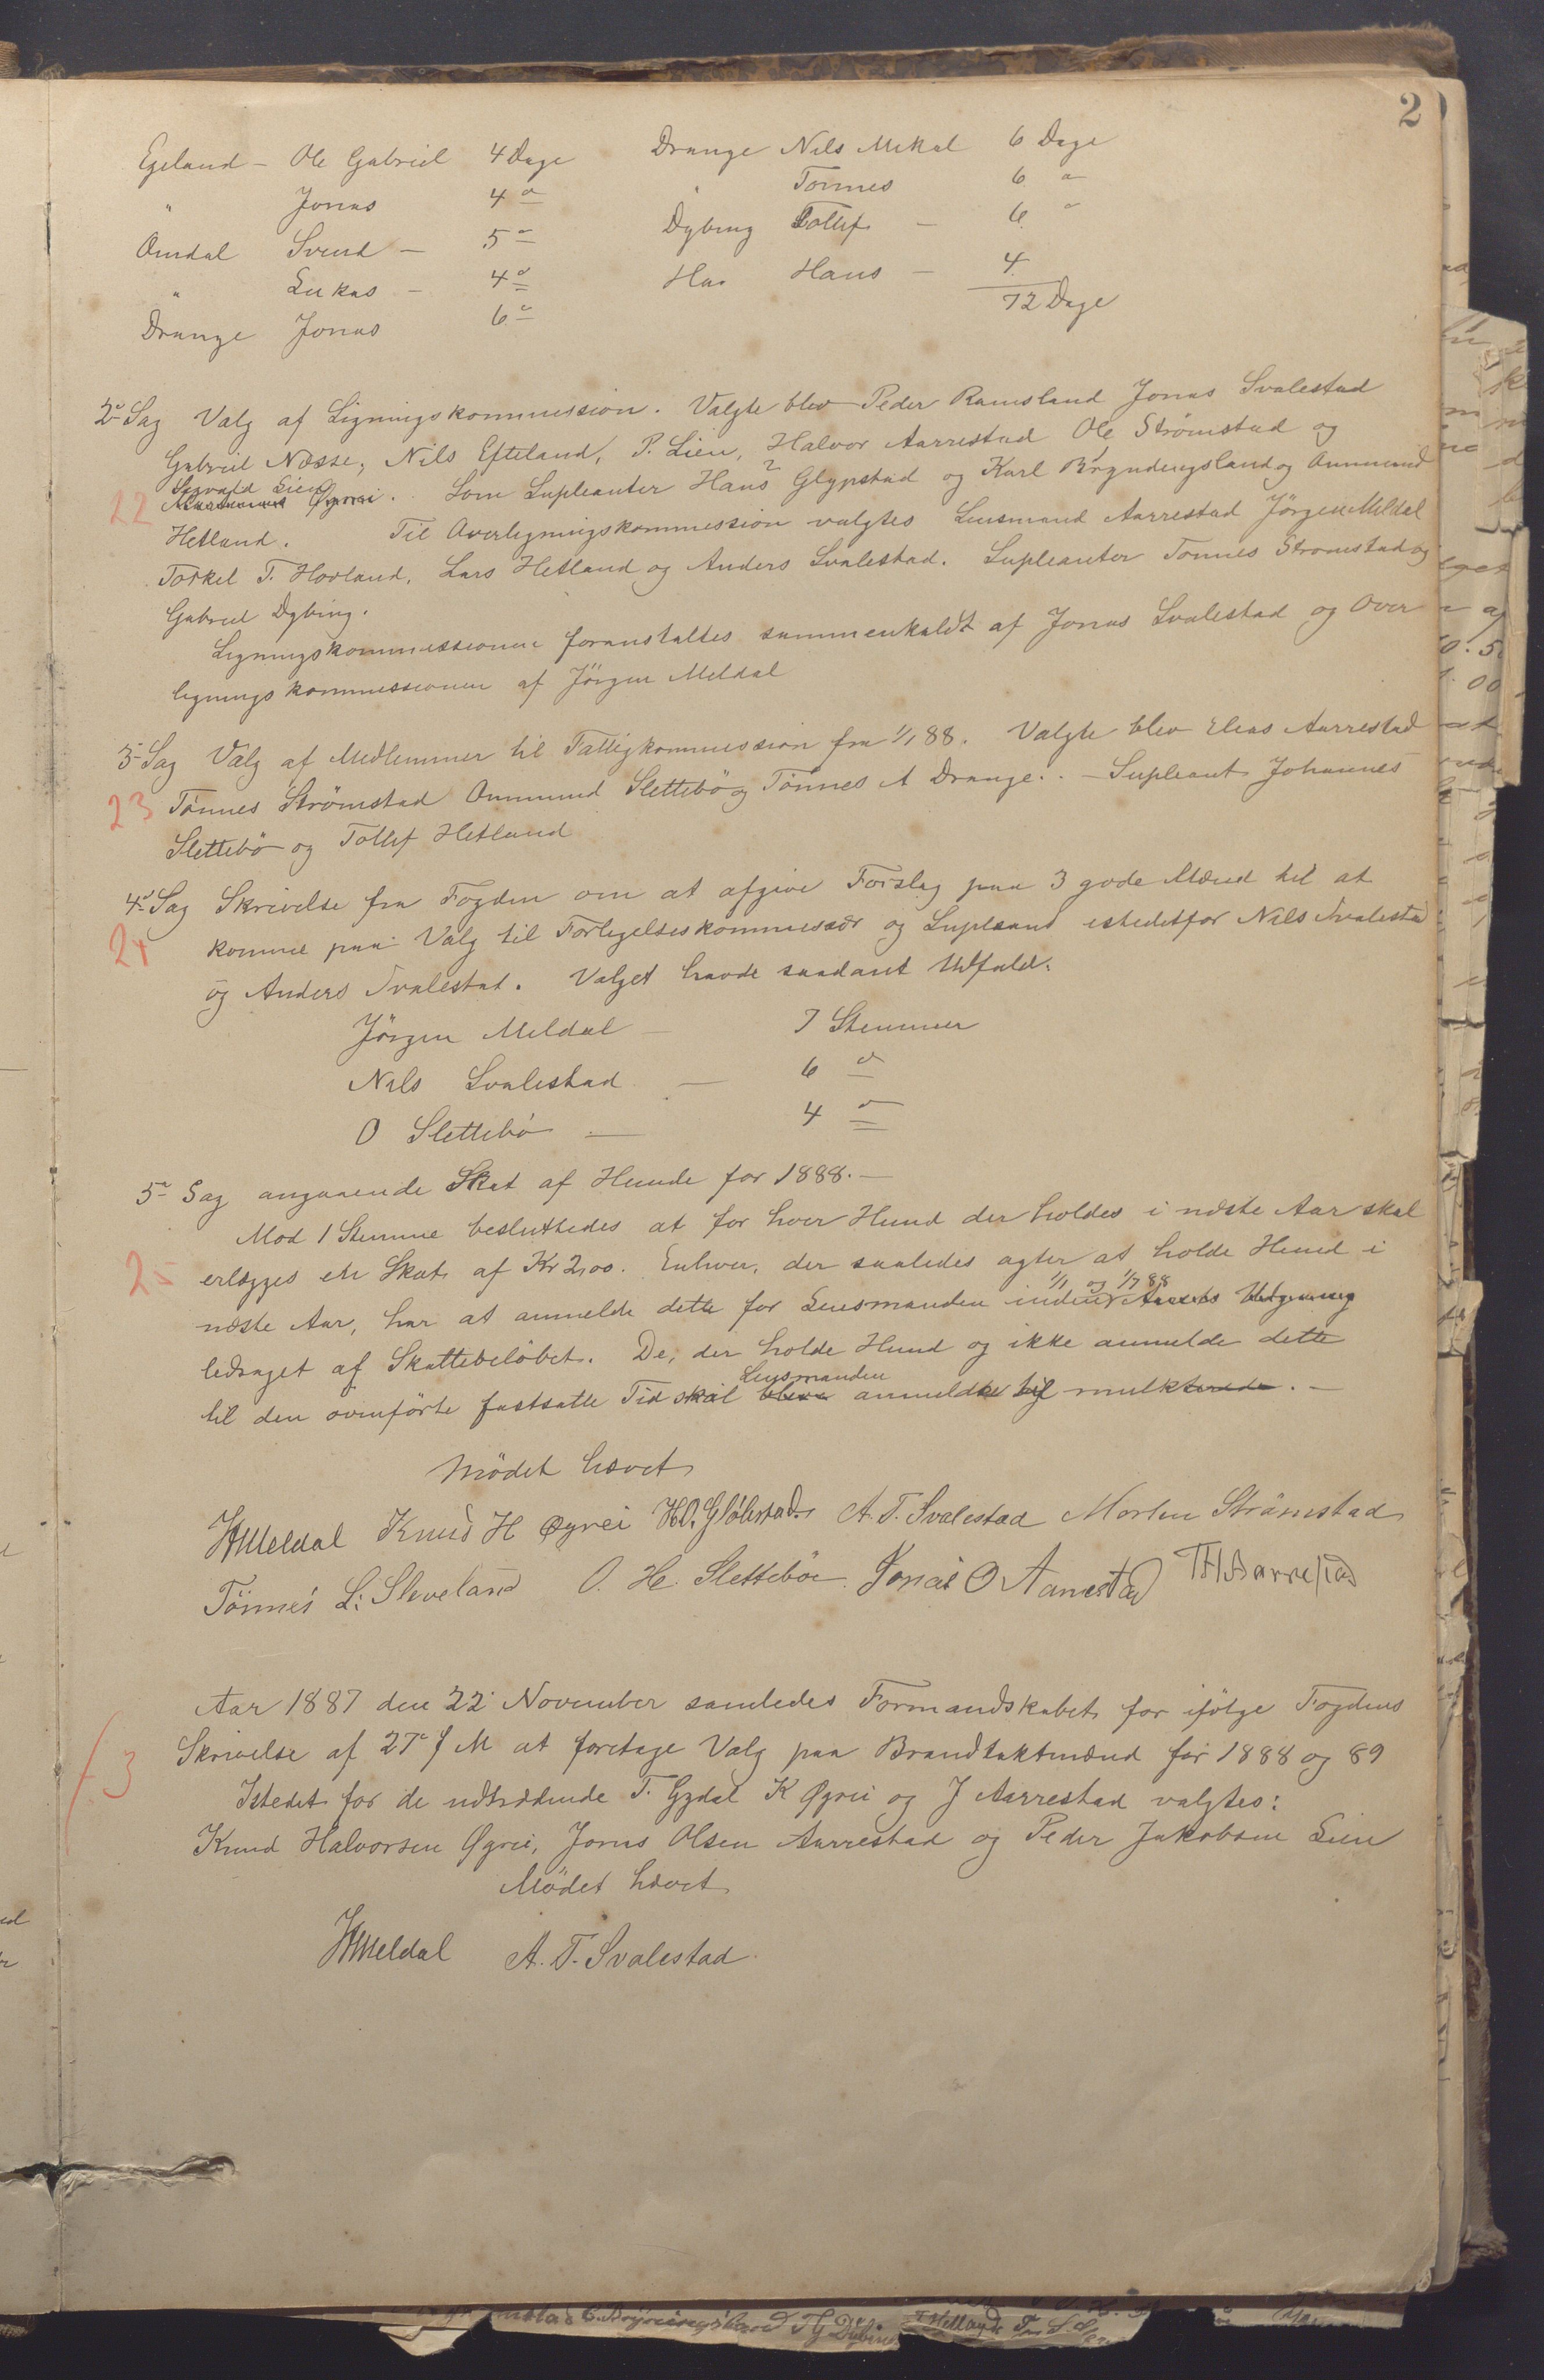 2
Egeland - Ole Gabriel 4 Dage
" Jonas 4 "
Omdal Svend - 5 "
" Lukas - 4 "
Drange Jonas 6 "
Drange Nils Mikal 6 Dage
" Tønnes 6 "
Dybing Tollef - 6 "
Hans - 4
72 Dage
2 Sag Valg af Ligningskommission. Valgte blev Peder Ramsland Jonas Svalestad
Gabriel Næsse, Nils Efteland, P. Lien, Halvor Aarrestad Ole Strømstad og
22 Sigvald Lien Øyrei. Som Supleanter Hans Glypstad og Karl Bryndingsland og Ommund
Hetland. Til Overligningskommission valgtes Lensmand Aarrestad Jörgen Meldal
Torkel T. Hovland, Lars Hetland og Anders Svalestad. Supleanter Tönnes Strömstad og
Gabriel Dybing.
Ligningskommissionen foranstaltes sammenkaldt af Jonas Svalestad og Over
ligningskommissionen af Jörgen Meldal
3 Sag Valg af Medlemmer til Fattigkommission fra 1/1 88. Valgte blev Elias Aarrestad
23 Tönnes Strömstad Ommund Slettebö og Tönnes A Drange. - Supleant Johannes
Slettebö og Tollef Hetland
4 Sag Skrivelse fra Fogden om at afgive Forslag paa 3 gode Mænd til at
24 komme paa Valg til Forligelseskommissær og Supleant istedetfor Nils Svalestad
og Anders Svalestad. Valget havde saadant Udfald:
Jörgen Meldal - 7 Stemmer
Nils Svalestad - 6 "
O Slettebö - 4 "
5 Sag angaaende Skat af Hunde for 1888. -
Mod 1 Stemme besluttedes at for hver Hund der holdes i næste Aar skal
25 erlægges en Skat af Kr 2,00. Enhver, der saaledes agter at holde Hund i
1/1 og 1/7 88
næste Aar, har at anmelde dette for Lensmanden inden Aarets Udgang
ledsaget af Skattebeløbet. De, der holde Hund og ikke anmelde dette
Lensmanden
til den ovenförte fastsatte Tid skal blive anmeldte til mulkterede. -
Mödet hævet
Meldal Knud H Øyrei A. T. Svalestad Morten Strömstad
Tönnes L. Sleveland O. H. Slettebö Jonas O Aarrestad T H Aarrestad
Aar 1887 den 22 November samledes Formandskabet for ifölge Fogdens
Skrivelse af 27 f M at foretage Valg paa Brandtaktmænd for 1888 og 89
3 Istedet for de udtrædende T. Gydal K Øyrei og J Aarrestad valgtes:
Knud Halvorsen Øyrei, Jonas Olsen Aarrestad og Peder Jakobsen Lien
Mödet hævet
Meldal A. T. Svalestad